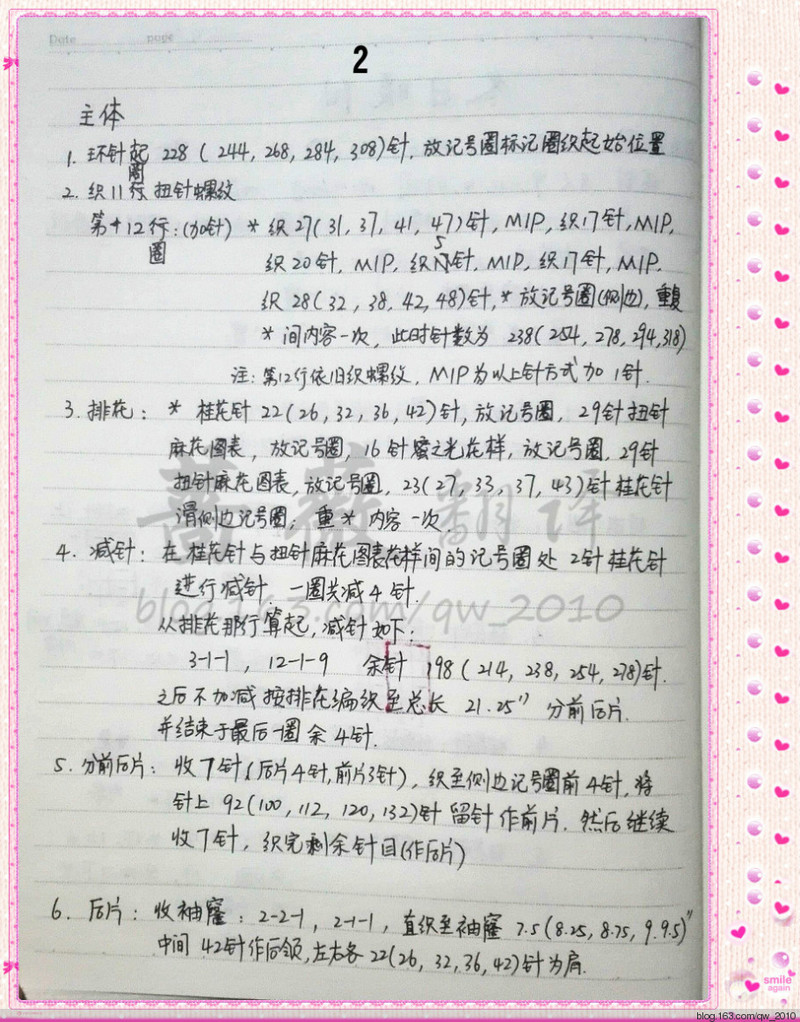 Date page
2
主体
1. 环针起 228 ( 244, 268, 284, 308)针, 放记号圈标记圈织起始位置
圈
2. 织11行 扭针螺纹
第十12行:(加针) * 织 27(31, 37, 41, 47)针, M1P, 织17针, M1P,
圈
织20针, M1P, 织15针, M1P, 织17针, M1P,
织 28(32, 38, 42, 48)针, * 放记号圈(侧边), 重复
* 间内容一次, 此时针数为 238(254, 278, 294, 318)
注: 第12行依旧织螺纹, M1P为以上针方式加1针.
3. 排花: * 桂花针 22(26, 32, 36, 42)针, 放记号圈, 29针扭针
麻花图表, 放记号圈, 16针蜜之光花样, 放记号圈, 29针
扭针麻花图表, 放记号圈, 23(27, 33, 37, 43)针桂花针
滑侧边记号圈, 重*内容一次.
蔷薇翻译
4. 减针: 在桂花针与扭针麻花图表花样间的记号圈处 2针桂花针
进行减针. 一圈共减4针.
blog.163.com/qw_2010
从排花那行算起, 减针如下:
3-1-1, 12-1-9 余针 198 ( 214, 238, 254, 278)针.
之后不加减 按排花编织至总长 21.25" 分前后片.
并结束于最后一圈余4针.
5. 分前后片: 收7针(后片4针, 前片3针), 织至侧边记号圈前4针, 将
针上 92(100, 112, 120, 132)针 留针作前片. 然后继续
收7针, 织完剩余针目(作后片)
6. 后片: 收袖窿: 2-2-1, 2-1-1, 直织至袖窿 7.5(8.25, 8.75, 9. 9.5)"
中间 42针作后领, 左右各 22(26, 32, 36, 42)针为肩.
smile
again
blog.163.com/qw_2010